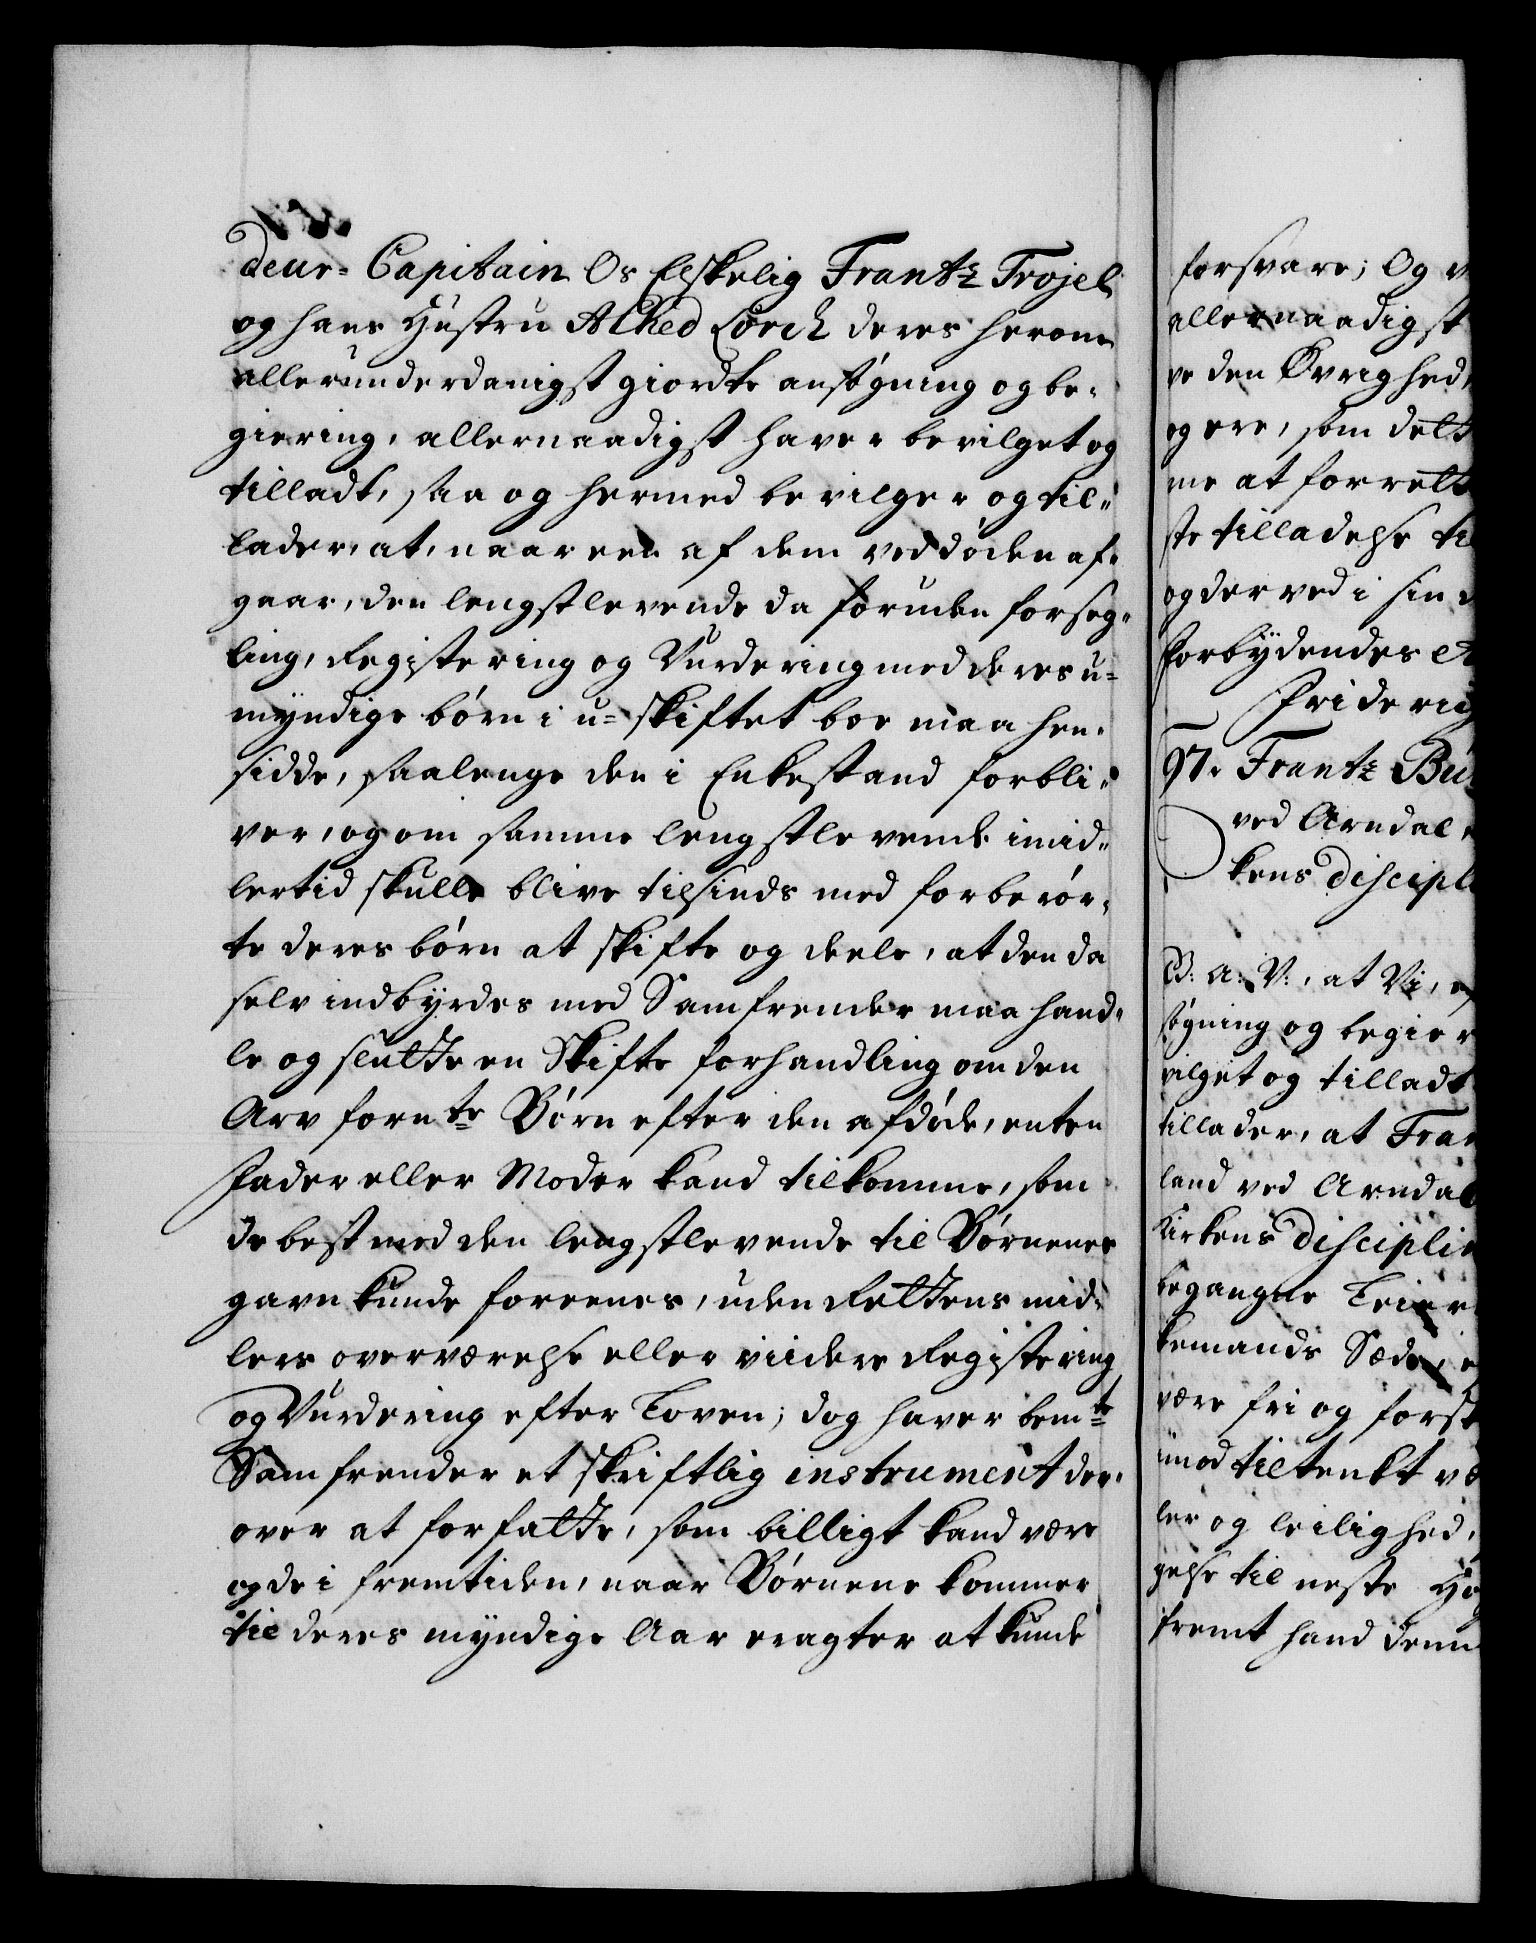 deur- Capitain Os Elskelig Frantz Trojel
og hans Hustru Alhed Lorck deres herom
allerunderdanigst giordte ansøgning og be-
giering, allernaadigst haver bevilget og
tilladt, saa og hermed bevilger og til-
lader, at, naar een af dem ved døden af-
gaar, den lengstlevende da foruden forseg-
ling, Registering og Vurdering med deres u-
myndige børn i u-skiftet boe maa hen-
sidde, saalenge den i Enkestand forbli-
ver, og om samme lengstlevende imid-
lertid skulle blive tilsinds med forberør-
te deres børn at skifte og deele, at den da
selv indbyrdes med Samfrender maa hand-
le og slutte en Skifte forhandling om den
Arv fornte Børn efter den afdøde, enten
Fader eller Moder kand tilkomme, som
de best med den lengstlevende til Børnenes
gavn kunde foreenes, uden Rettens mid-
lers overværelse eller viidere Registering
og Vurdering efter Loven; dog haver bemte
Samfrender et skriftlig instrument der-
over at forfatte, som billigt kand være
og de i fremtiden, naar Børnene kommer
til deres myndige Aar eragter at kunde
forsvare; Og
allernaadigst
ve den Øvrighed
og ere, som dette
me at forrett
ste tilladelse til
og derved i sin
Forbydendes
Friderichs
97. Frantz
ved Arndal
kens discipl
B: A: V:, at Vi,
søgning og begier
vilget og tilladt
tillader, at Fran
land ved Arndal
Kirkens disciplin
begangne Leier
kemands Sæde,
være fri og forsk
imod tiltenkt
ler og leilighed,
gelse til neste
fremt hand denn